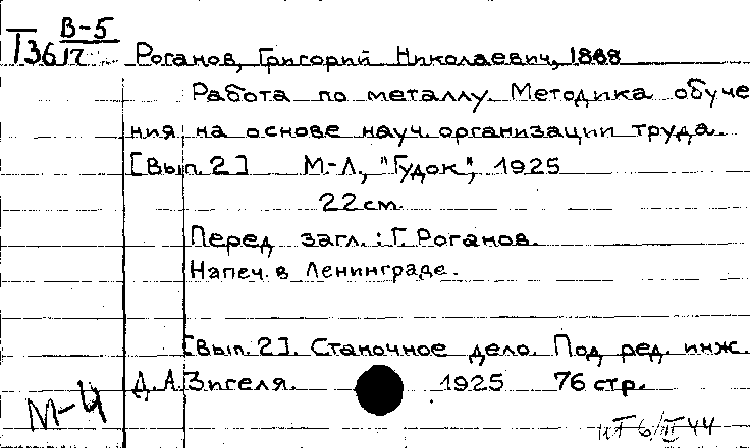 В-5
Роганов, Григорий Николаевич, 1888
Работа по металлу. Методика обуче
ния на основе науч. организации труда.
[Вып. 2] М-Л., "Гудок", 1925
22 см.
Перед загл.: Г. Роганов.
Напеч. в Ленинграде.
[Вып. 2]. Станочное дело. Под ред. инж.
Д. А. Зигеля. 1925 76 стр.
М-4